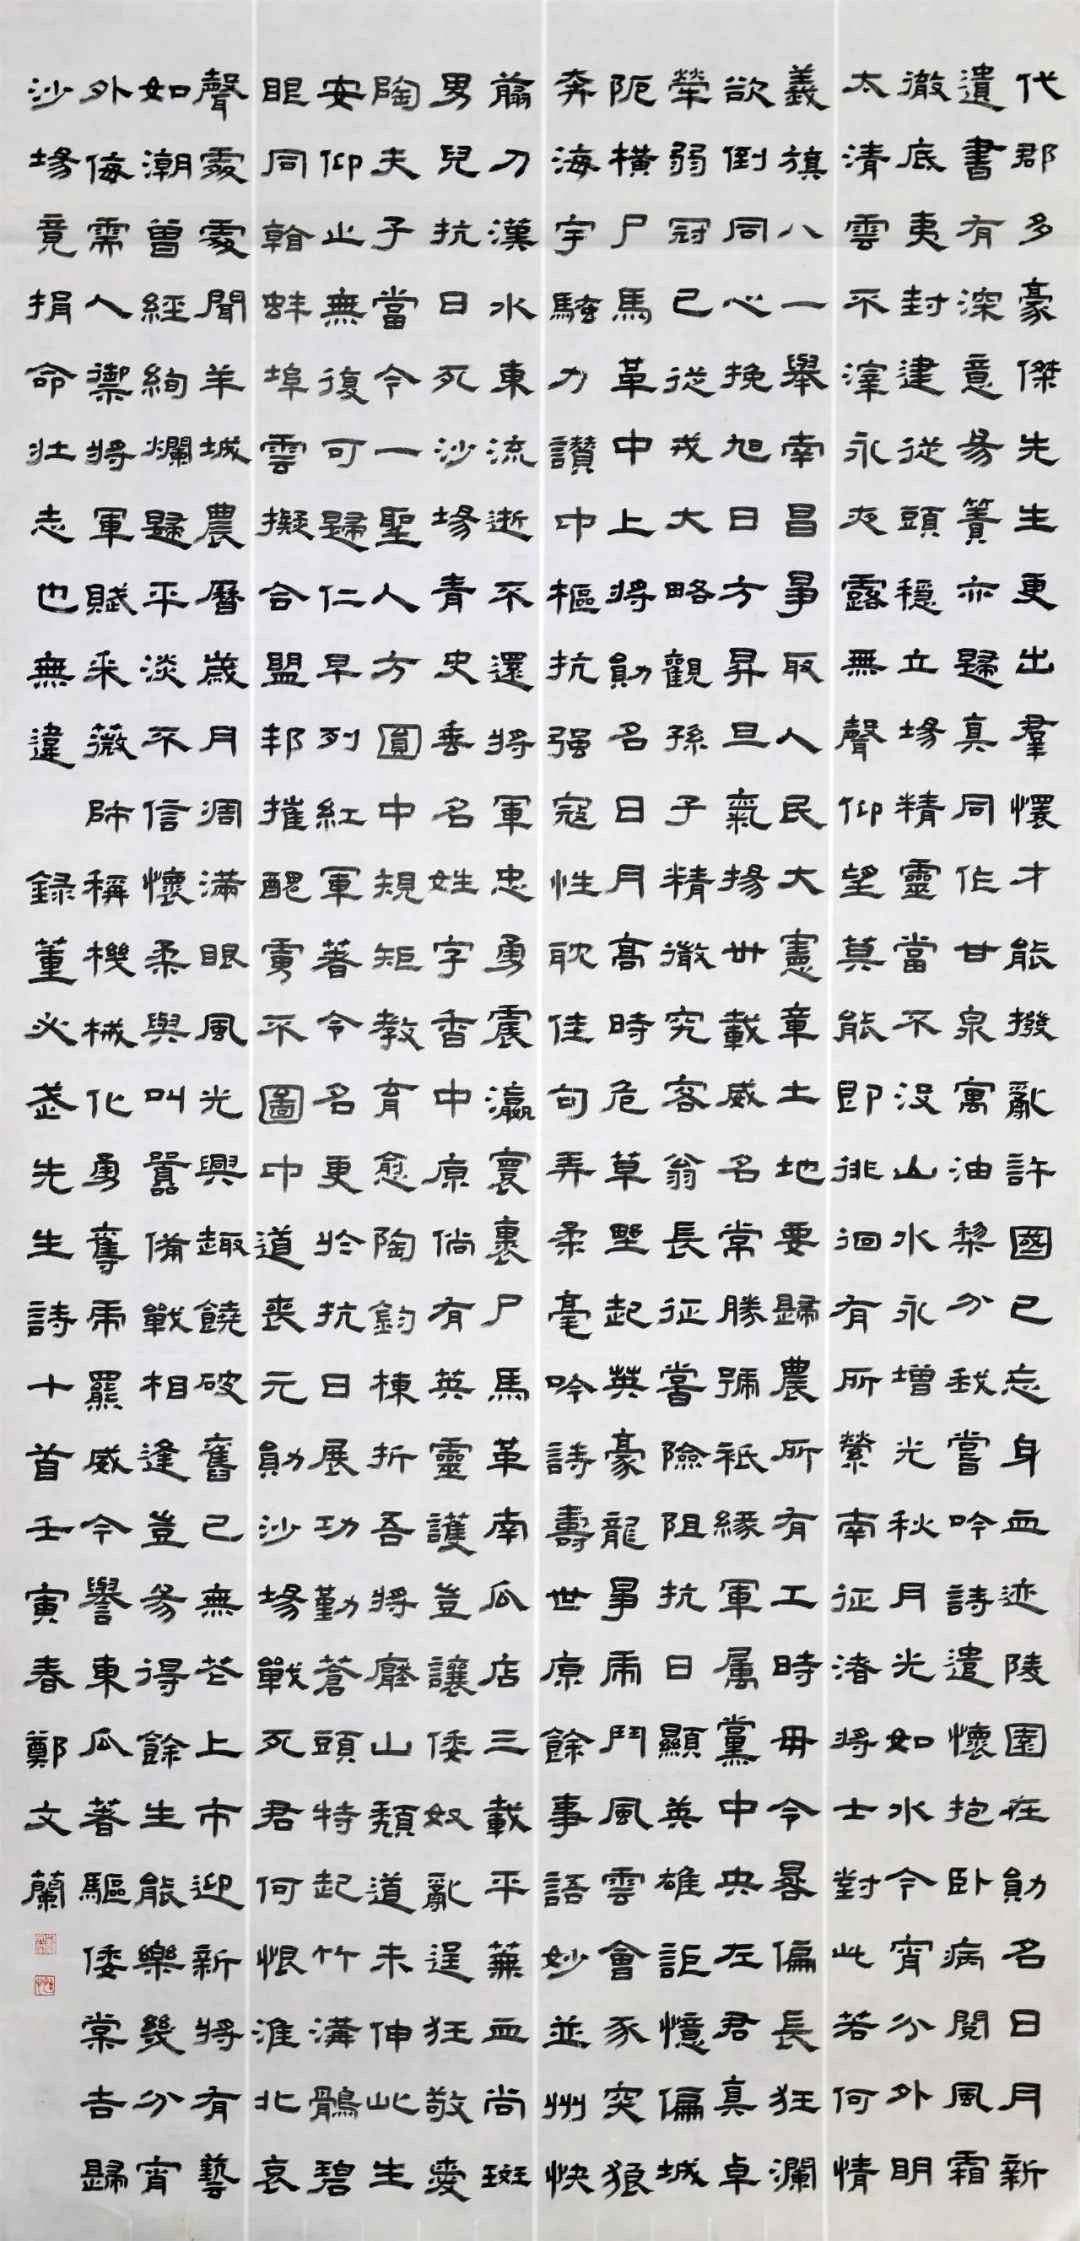 代郡多豪傑先生更出羣懷才能撥亂許國已忘身血迹陵園在勛名日月新
遺書有深意易簀亦歸真同作甘泉寓油黎分我嘗吟詩遣懷抱卧病閱風霜
徹底夷封建從頭穩立場精靈當不没山水永增光秋月光如水今宵分外明
太清雲不滓永夜露無聲仰望莫能即徘徊有所縈南征渚將士對此若何情
義旗八一舉南昌爭取人民大憲章土地要歸農所有工時毋令晷偏長狂瀾
欲倒同心挽旭日方昇旦氣揚卅載威名常勝號祇緣軍属黨中央左君真卓
犖弱冠已從戎大略觀孫子精徵究容翁長征嘗險阻抗日顯英雄詎憶偏城
阨橫尸馬革中上將勛名日月高時危草野起英豪龍爭虎鬥風雲會豕突狼
奔海宇騷力讃中樞抗强寇性耽佳句弄柔毫吟詩壽世原餘事語妙並州快
翦刀漢水東流逝不還將軍忠勇震瀛寰裹尸馬革南瓜店三載平蕪血尚斑
男兒抗日死沙場青史垂名姓字香中原倘有英靈護豈讓倭奴亂逞狂敬愛
陶夫子當今一聖人方圓中規矩教育愈陶鈞棟折吾將壓山頹道未伸此生
安仰止無復可歸仁早列紅軍著令名更於抗日展功勤蒼頭特起竹溝鶻碧
眼同翰蚌埠雲擬合盟邦摧醜虜不圖中道喪元勛沙場戰死君何恨淮北哀
聲處處聞羊城農曆歲月凋滿眼風光興趣饒破舊已無芒上市迎新將有藝
如潮曾經絢爛歸平淡不信懷柔與叫囂備戰相逢豈易得餘生能樂幾分宵
外侮需人禦將軍賦采薇師稱機械化勇奪虎羆威今譽東瓜著驅倭棠吉歸
沙場竟捐命壯志也無違 錄董必武先生詩十首壬寅春鄭文蘭